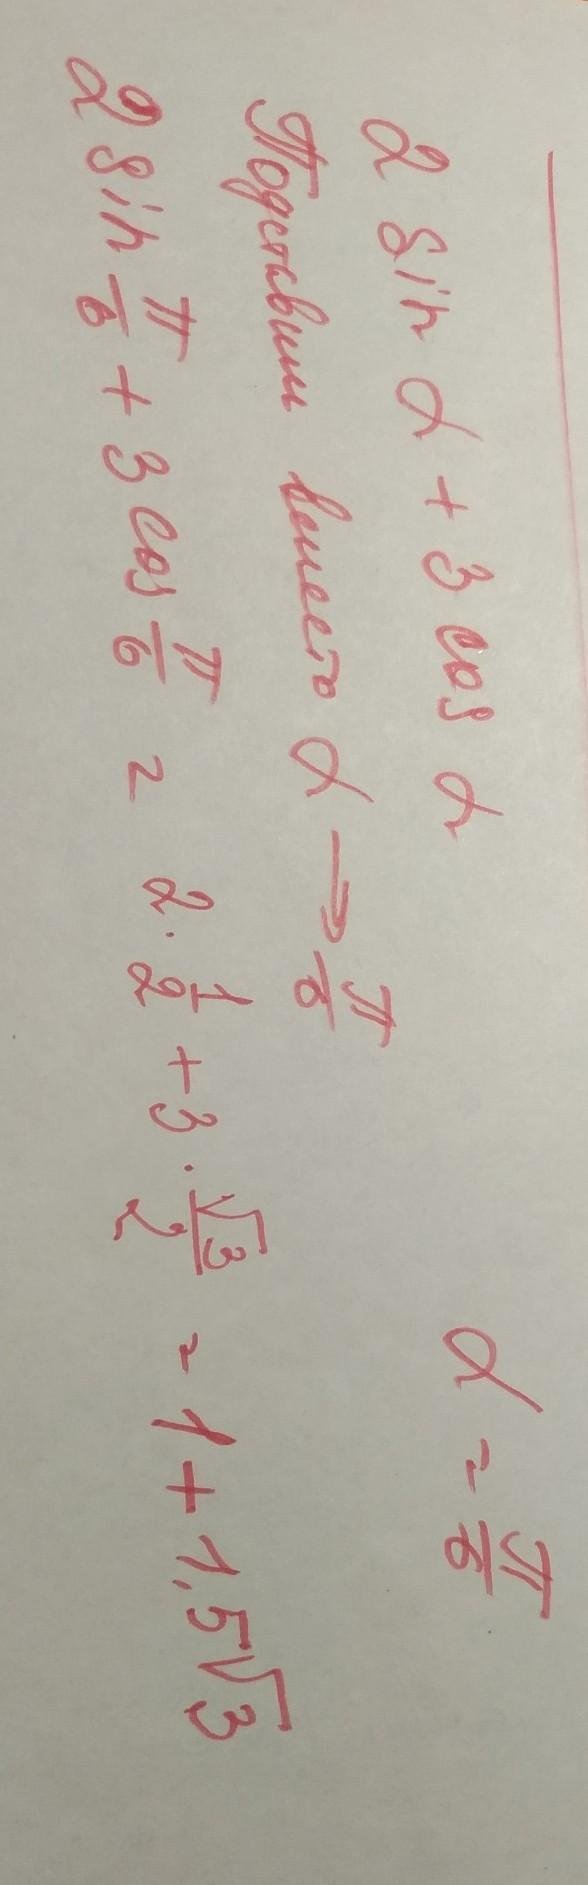 2 sin α + 3 cos α α = π/6
Подставим вместо α → π/6
2 sin π/6 + 3 cos π/6 = 2 · 1/2 + 3 · √3/2 = 1 + 1,5√3